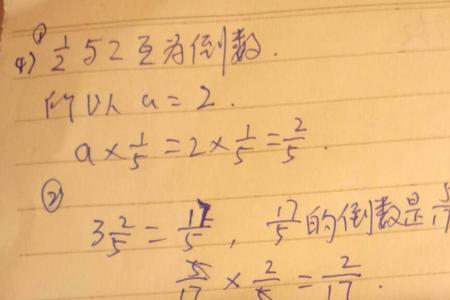 4) ① 1/2 与 2 互为倒数.
所以 a = 2.
a × 1/5 = 2 × 1/5 = 2/5.
②
3 2/5 = 17/5, 17/5 的倒数是 5/17
5/17 × 2/5 = 2/17.